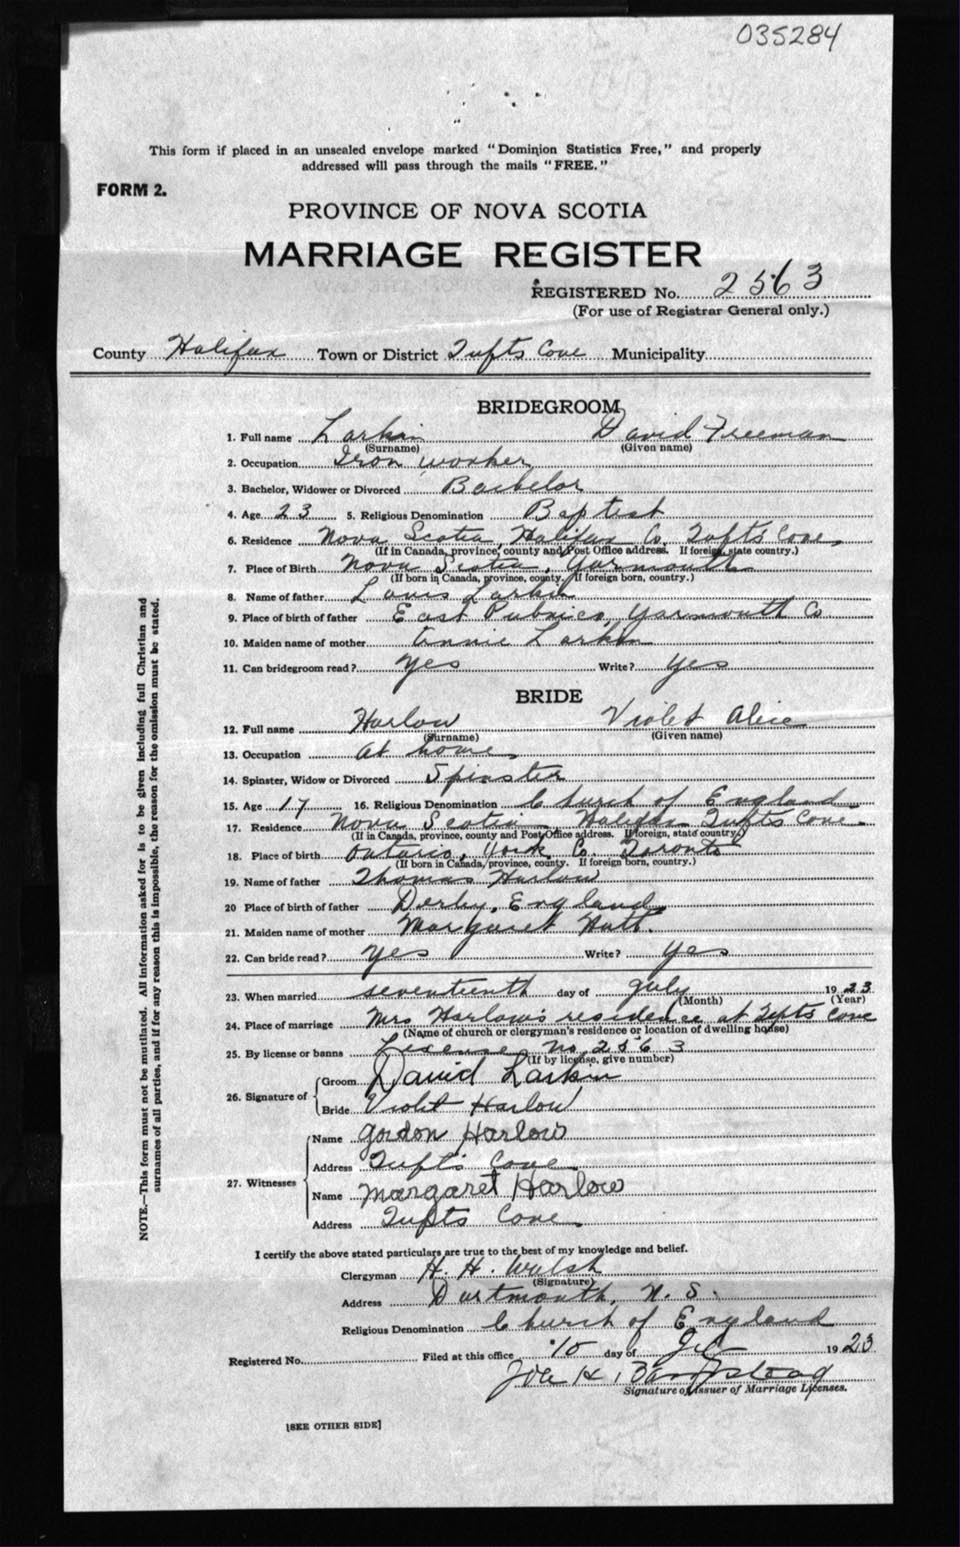 035284
This form if placed in an unsealed envelope marked "Dominion Statistics Free," and properly
addressed will pass through the mails "FREE."
FORM 2.
PROVINCE OF NOVA SCOTIA
MARRIAGE REGISTER
REGISTERED No. 2563
(For use of Registrar General only.)
County Halifax Town or District Tufts Cove Municipality
BRIDEGROOM
1. Full name Larkin David Freeman
(Surname) (Given name)
2. Occupation Iron worker
3. Bachelor, Widower or Divorced Bachelor
4. Age 23 5. Religious Denomination Baptist
6. Residence Nova Scotia, Halifax Co. Tufts Cove,
(If in Canada, province, county and Post Office address. If foreign, state country.)
7. Place of Birth Nova Scotia, Yarmouth
(If born in Canada, province, county. If foreign born, country.)
8. Name of father Louis Larkin
9. Place of birth of father East Pubnico, Yarmouth Co
10. Maiden name of mother Annie Larkin
11. Can bridegroom read? Yes Write? Yes
BRIDE
12. Full name Harlow Violet Alice
(Surname) (Given name)
13. Occupation At home
14. Spinster, Widow or Divorced Spinster
15. Age 17 16. Religious Denomination Church of England
17. Residence Nova Scotia Halifax Tufts Cove
(If in Canada, province, county and Post Office address. If foreign, state country.)
18. Place of birth Ontario, York Co. Toronto
(If born in Canada, province, county. If foreign born, country.)
19. Name of father Thomas Harlow
20 Place of birth of father Derby, England
21. Maiden name of mother Margaret Hatt.
22. Can bride read? Yes Write? Yes
23. When married seventeenth day of July 1923
(Month) (Year)
24. Place of marriage Mrs Harlow's residence at Tufts Cove
(Name of church or clergyman's residence or location of dwelling house)
25. By license or banns License No 2563
(If by license, give number)
26. Signature of Groom David Larkin
Bride Violet Harlow
27. Witnesses Name Gordon Harlow
Address Tufts Cove
Name Margaret Harlow
Address Tufts Cove
I certify the above stated particulars are true to the best of my knowledge and belief.
Clergyman H. H. Walsh
(Signature)
Address Dartmouth, N. S.
Religious Denomination Church of England
Registered No. Filed at this office 10 day of 1923
H.
Signature of Issuer of Marriage Licenses.
[SEE OTHER SIDE]
NOTE.—This form must not be mutilated. All information asked for is to be given including full Christian and
surnames of all parties, and if for any reason this is impossible, the reason for the omission must be stated.